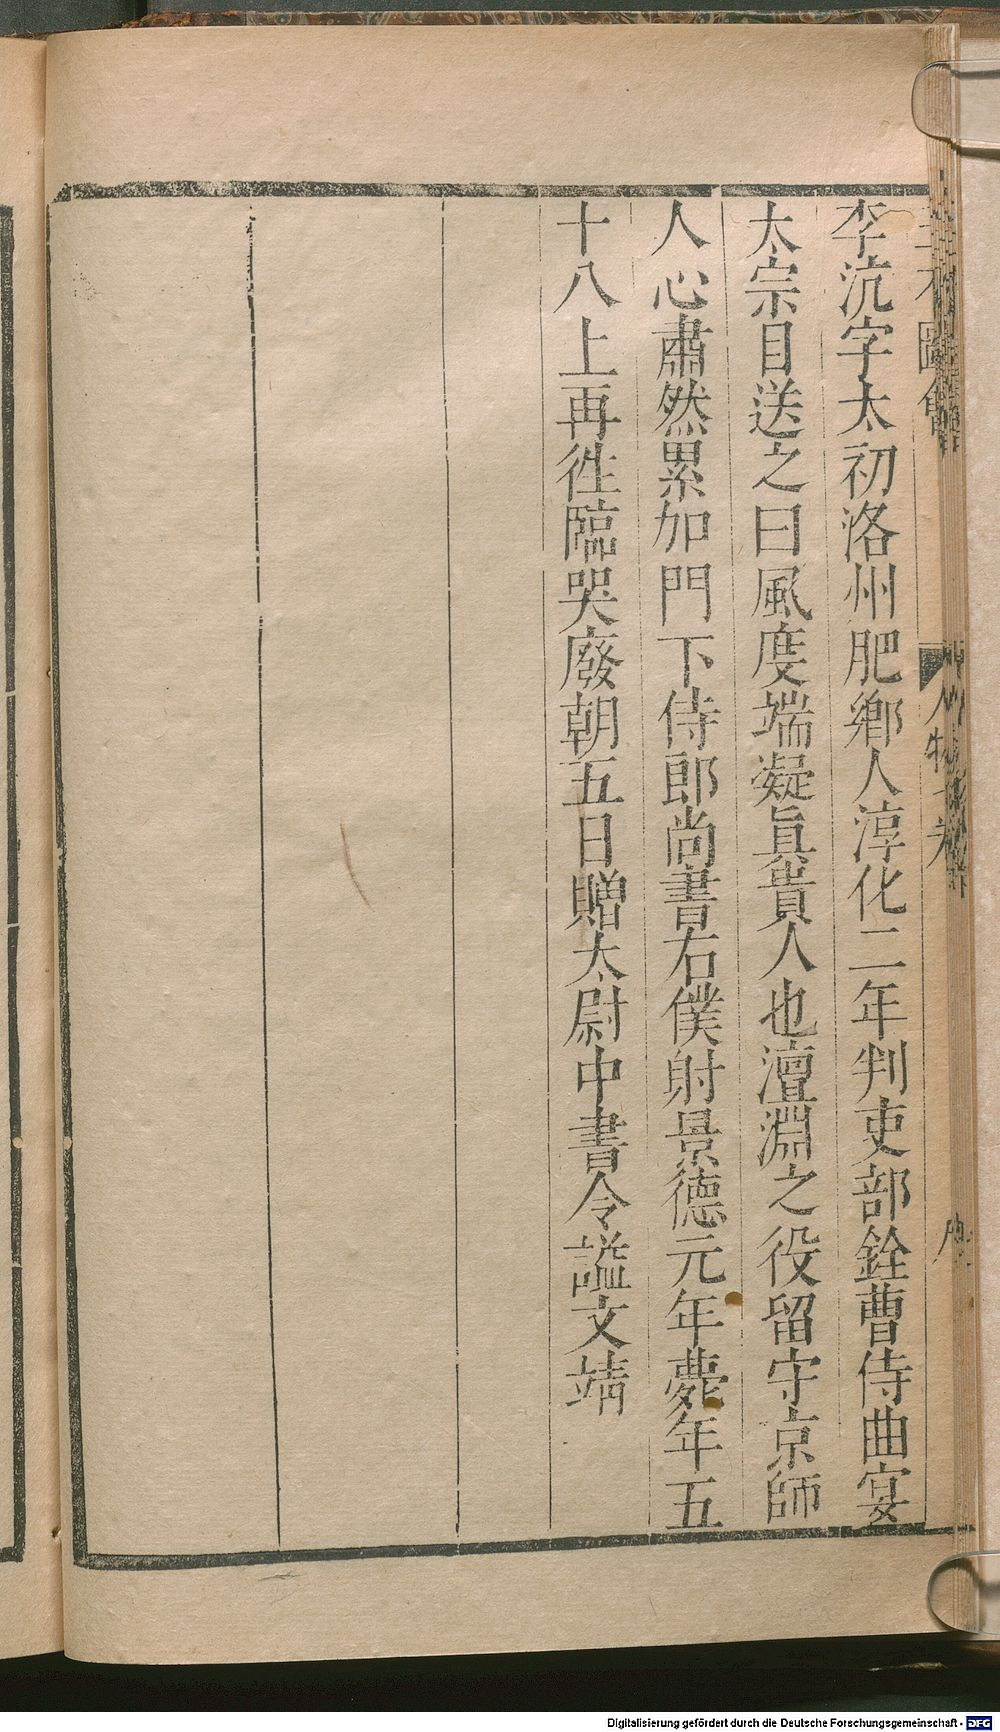 李沆字太初洛州肥鄉人淳化二年判吏部銓曹侍曲宴
太宗目送之曰風度端凝眞貴人也澶淵之役留守京師
人心肅然累加門下侍郎尚書右僕射景德元年薨年五
十八上再徃臨哭廢朝五日贈太尉中書令謚文靖
Digitalisierung gefördert durch die Deutsche Forschungsgemeinschaft - DFG